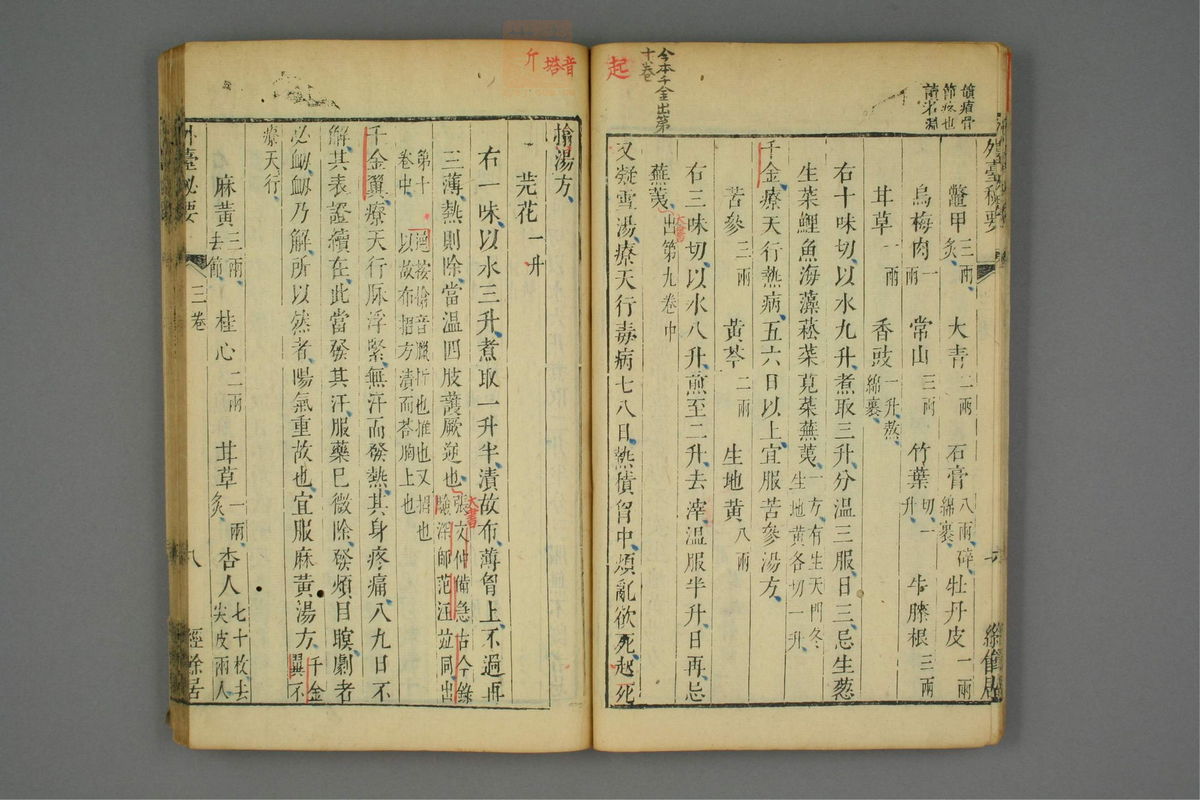 今本千金出第
十卷
起
外臺秘要
鼈甲三兩炙 大青二兩 石膏八兩碎綿裹 牡丹皮一兩
烏梅肉一兩 常山三兩 竹葉切一升 牛膝根三兩
甘草一兩 香豉一升熬綿裹
右十味切以水九升煮取三升分溫三服日三忌生葱
生菜鯉魚海藻菘菜莧菜蕪荑一方有生天門冬生地黃各切一升
千金療天行熱病五六日以上宜服苦參湯方
苦參三兩 黃芩二兩 生地黃八兩
右三味切以水八升煎至二升去滓溫服半升日再忌
蕪荑出第九卷中
大書
又凝雪湯療天行毒病七八日熱積胷中煩亂欲死起死
音
塔
斤
搶湯方
芫花一升
右一味以水三升煮取一升半漬故布薄胷上不過再
三薄熱則除當溫四肢護厥逆也張文仲備急古今錄驗深師范汪竝同出
大書
第十卷中
療天行
千金翼療天行脉浮緊無汗而發熱其身疼痛八九日不
解其表證續在此當發其汗服藥已微除發煩目瞑劇者
必衂衂乃解所以然者陽氣重故也宜服麻黃湯方千金翼不
麻黃三兩去節 桂心二兩 甘草一兩炙 杏人七十枚去尖皮兩人
外臺祕要 三卷 八 經餘居